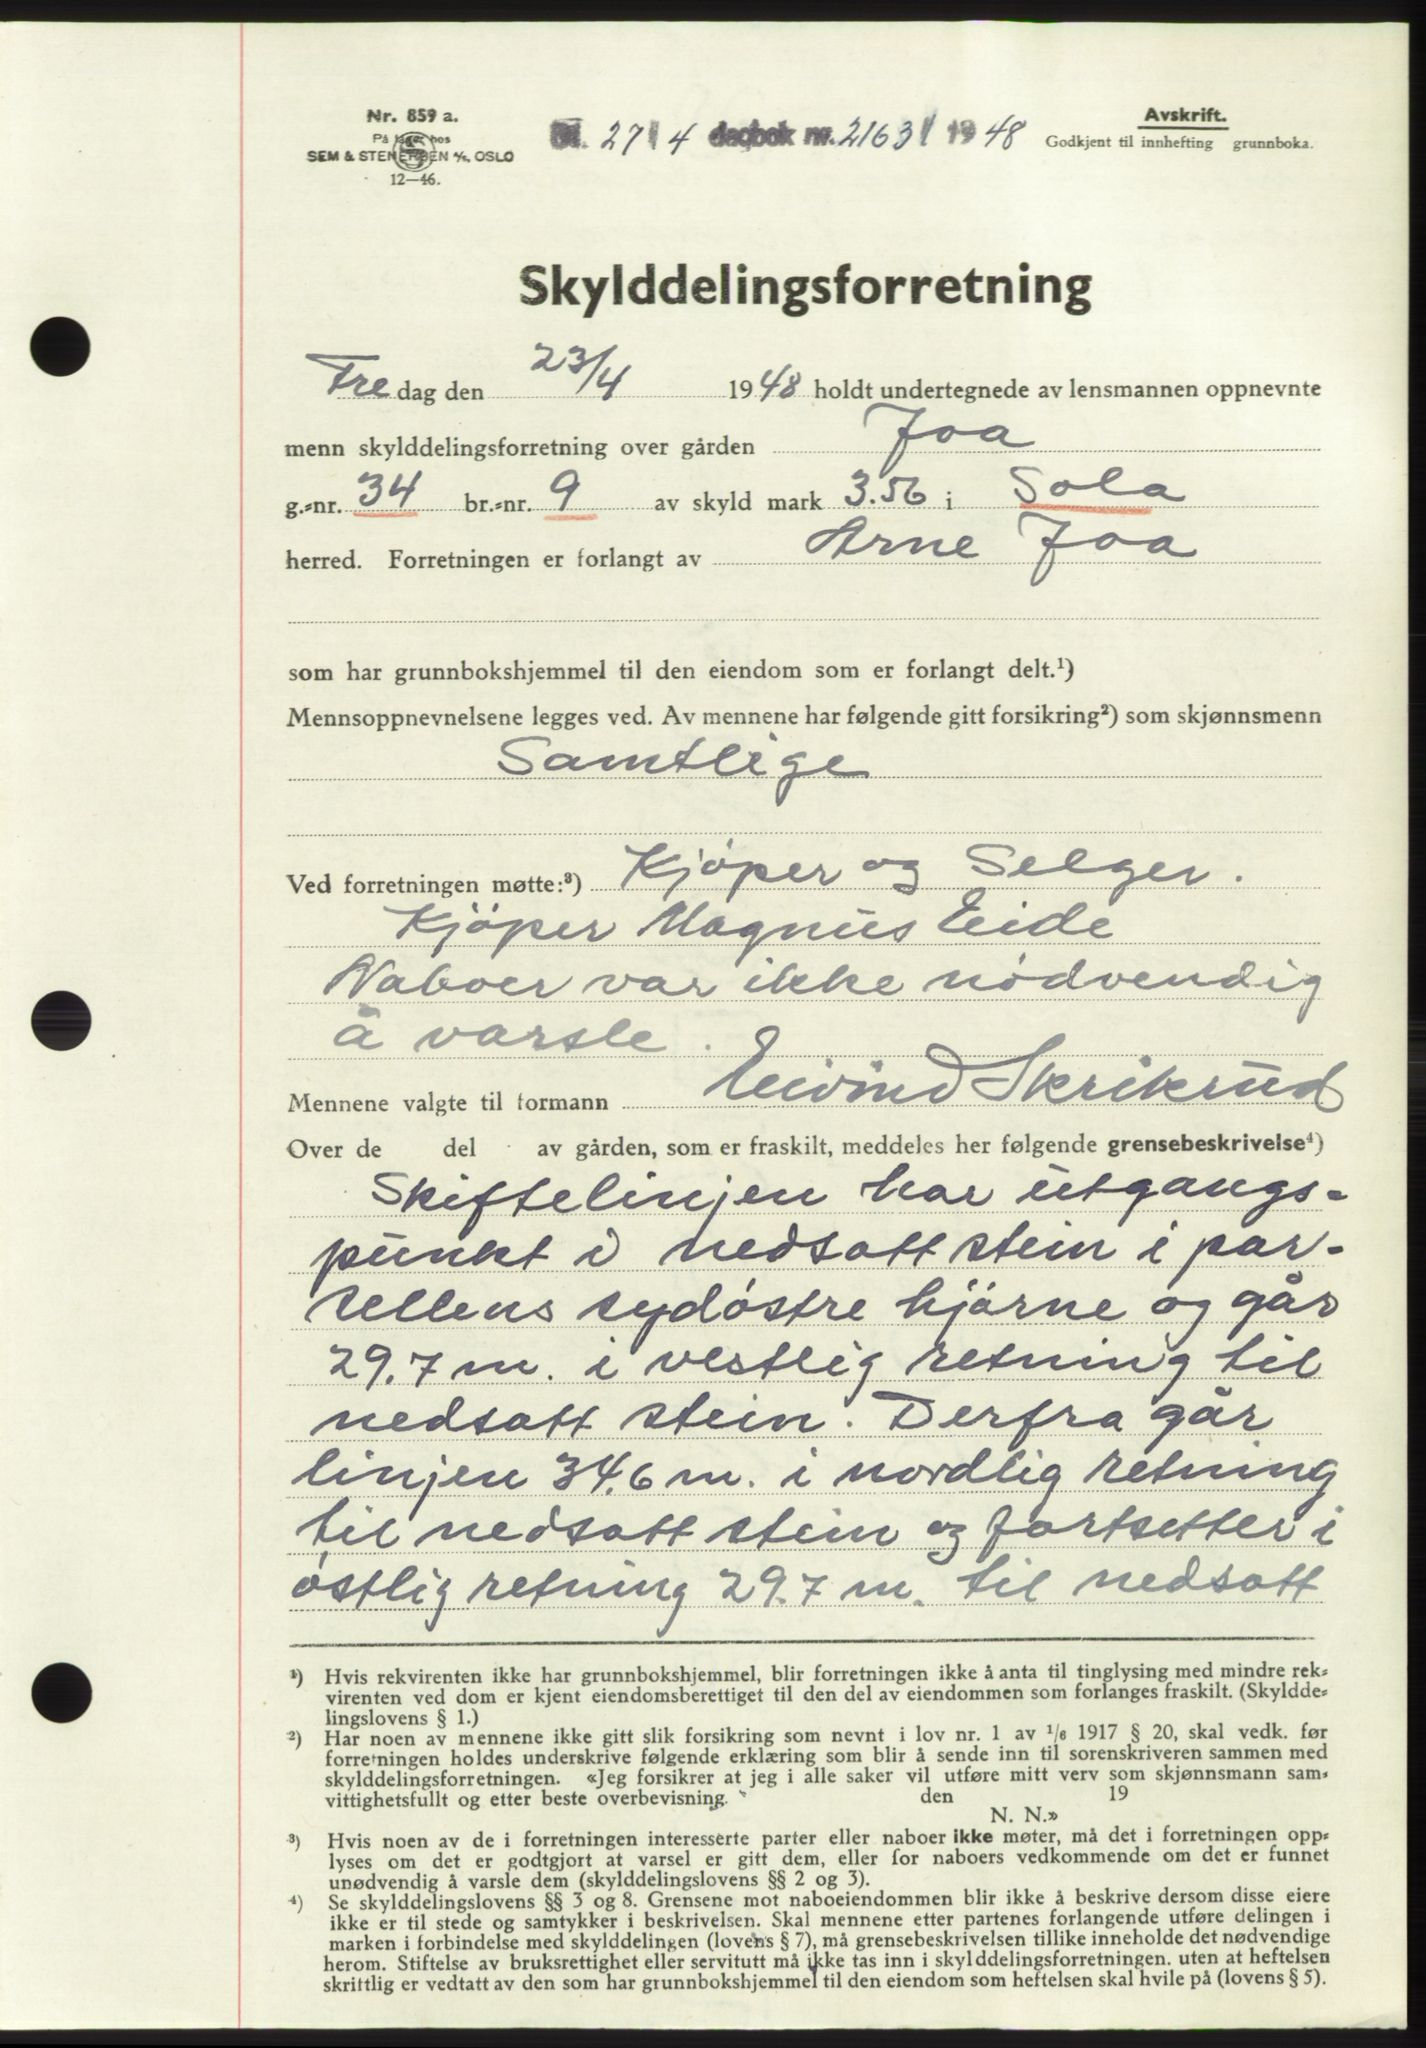 Nr. 859 a.
På lager hos
SEM & STENERSEN A/S, OSLO
12—46.
27/4 dagbok nr. 2163/1948
Avskrift.
Godkjent til innhefting grunnboka.
Skylddelingsforretning
Fredag den 23/4 1948 holdt undertegnede av lensmannen oppnevnte
menn skylddelingsforretning over gården Joa
g.-nr. 34 br.-nr. 9 av skyld mark 3.56 i Sola
herred. Forretningen er forlangt av Arne Joa
som har grunnbokshjemmel til den eiendom som er forlangt delt.¹)
Mennsoppnevnelsene legges ved. Av mennene har følgende gitt forsikring²) som skjønnsmenn
Samtlige
Ved forretningen møtte:³) Kjóper og Selger.
Kjóper Magnus Eide
Naboer var ikke nódvendig
å varsle.
Mennene valgte til formann Eivind Skrikrud
Over de del av gården, som er fraskilt, meddeles her følgende grensebeskrivelse⁴)
Skiftelinjen har utgangs-
punkt i nedsatt stein i par-
sellens sydóstre hjórne og går
29.7 m. i vestlig retning til
nedsatt stein. Derfra går
linjen 34.6 m. i nordlig retning
til nedsatt stein og fortsetter i
óstlig retning 29.7 m. til nedsatt
¹) Hvis rekvirenten ikke har grunnbokshjemmel, blir forretningen ikke å anta til tinglysing med mindre rek-
virenten ved dom er kjent eiendomsberettiget til den del av eiendommen som forlanges fraskilt. (Skyldde-
lingslovens § 1.)
²) Har noen av mennene ikke gitt slik forsikring som nevnt i lov nr. 1 av 1/6 1917 § 20, skal vedk. før
forretningen holdes underskrive følgende erklæring som blir å sende inn til sorenskriveren sammen med
skylddelingsforretningen. «Jeg forsikrer at jeg i alle saker vil utføre mitt verv som skjønnsmann sam-
vittighetsfullt og etter beste overbevisning. den 19
N. N.»
³) Hvis noen av de i forretningen interesserte parter eller naboer ikke møter, må det i forretningen opp-
lyses om det er godtgjort at varsel er gitt dem, eller for naboers vedkommende om det er funnet
unødvendig å varsle dem (skylddelingslovens §§ 2 og 3).
⁴) Se skylddelingslovens §§ 3 og 8. Grensene mot naboeiendommen blir ikke å beskrive dersom disse eiere
ikke er til stede og samtykker i beskrivelsen. Skal mennene etter partenes forlangende utføre delingen i
marken i forbindelse med skylddelingen (lovens § 7), må grensebeskrivelsen tillike inneholde det nødvendige
herom. Stiftelse av bruksrettighet eller servitutt må ikke tas inn i skylddelingsforretningen. uten at heftelsen
skriftlig er vedtatt av den som har grunnbokshjemmel til den eiendom som heftelsen skal hvile på (lovens § 5).